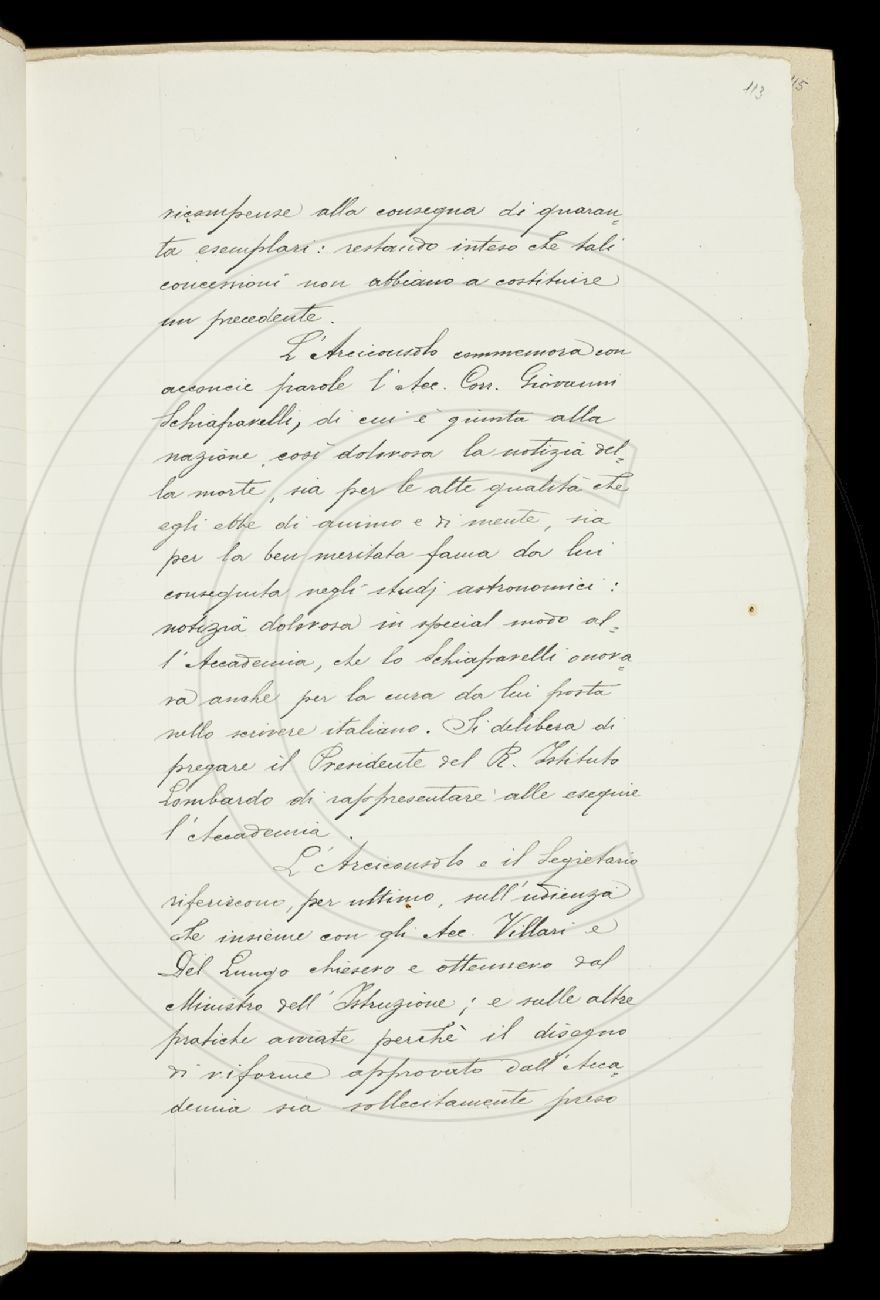 113
115
ricompense alla consegna di quaran=
ta esemplari: restando inteso che tali
concessioni non abbiano a costituire
un precedente.
L'Arciconsolo commemora con
acconcie parole l'Acc. Corr. Giovanni
Schiaparelli, di cui è giunta alla
nazione così dolorosa la notizia del=
la morte, sia per le alte qualità che
egli ebbe di animo e di mente, sia
per la ben meritata fama da lui
conseguita negli studj astronomici:
notizia dolorosa in special modo al=
l'Accademia, che lo Schiaparelli onora=
va anche per la cura da lui posta
nello scrivere italiano. Si delibera di
pregare il Presidente del R. Istituto
Lombardo di rappresentare alle esequie
l'Accademia.
L'Arciconsolo e il Segretario
riferiscono, per ultimo, sull'udienza
che insieme con gli Acc. Villari e
Del Lungo chiesero e ottennero dal
Ministro dell'Istruzione; e sulle altre
pratiche avviate perchè il disegno
di riforme approvato dall'Acca=
demia sia sollecitamente preso